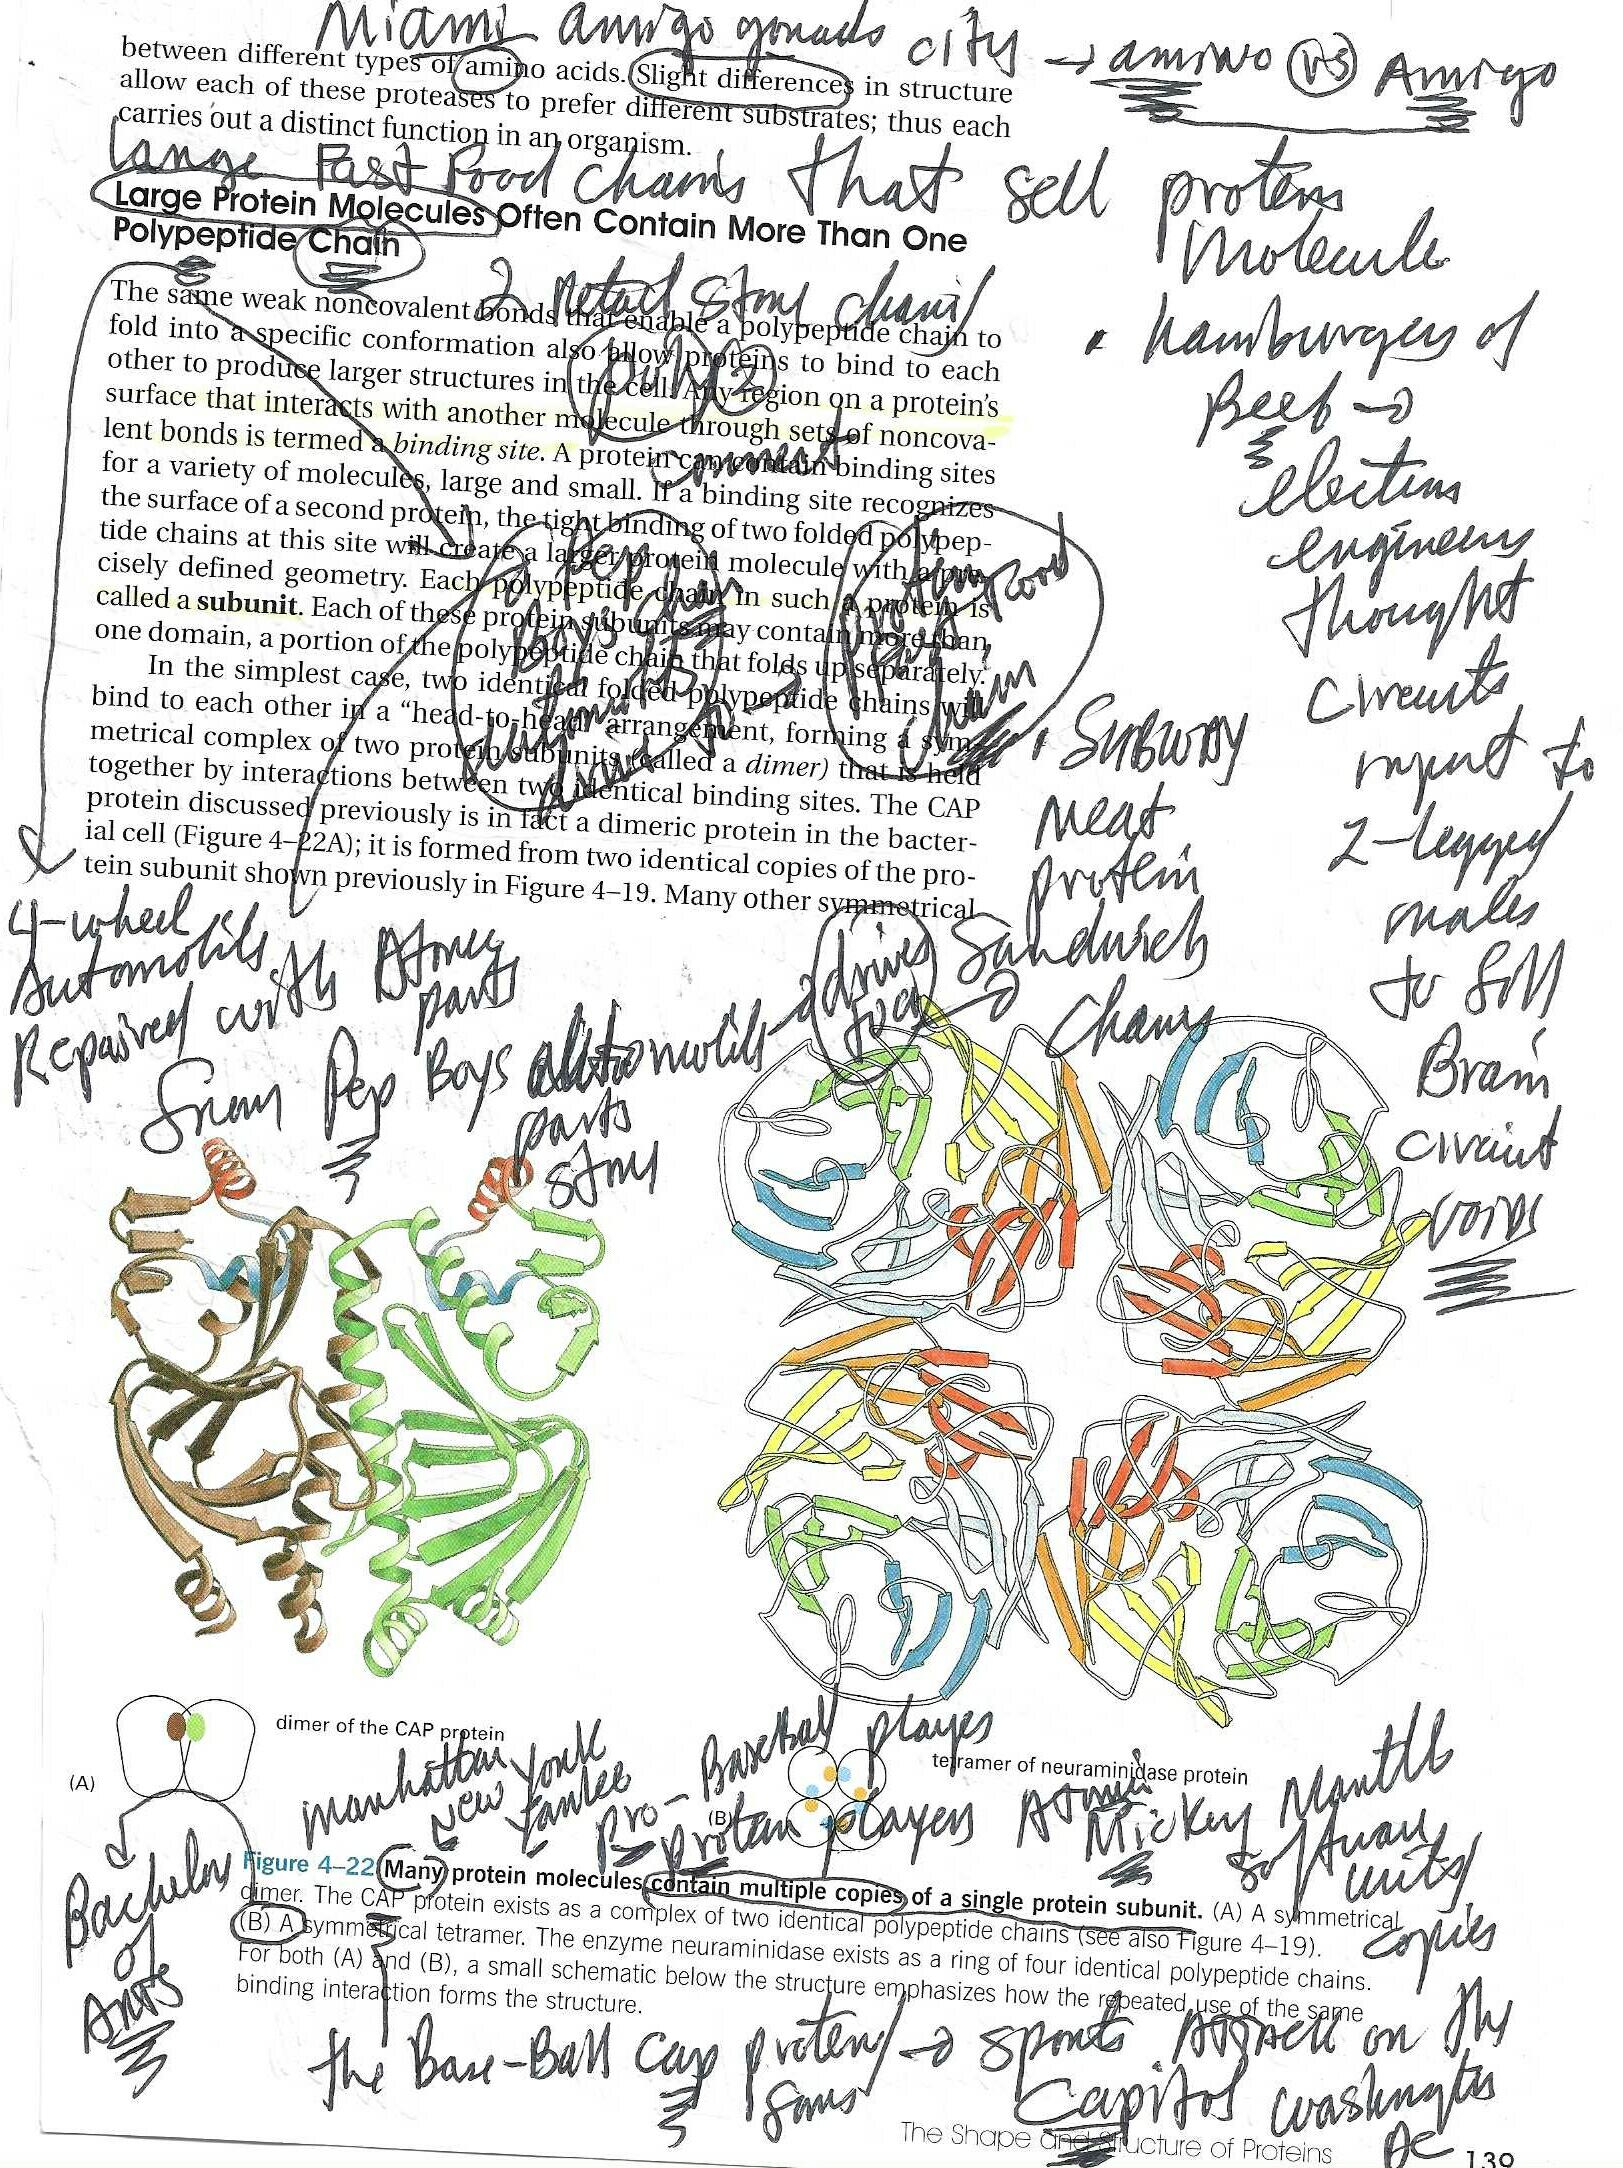 Miami amigo gonads city → amino vs Amigo
between different types of amino acids. Slight differences in structure
allow each of these proteases to prefer different substrates; thus each
carries out a distinct function in an organism.
Large Fast Food chains that sell protein
Molecule
Large Protein Molecules Often Contain More Than One
Polypeptide Chain
2 retail store chains
The same weak noncovalent bonds that enable a polypeptide chain to
fold into a specific conformation also allow proteins to bind to each
other to produce larger structures in the cell. Any region on a protein's
surface that interacts with another molecule through sets of noncova-
lent bonds is termed a binding site. A protein can contain binding sites
for a variety of molecules, large and small. If a binding site recognizes
the surface of a second protein, the tight binding of two folded polypep-
tide chains at this site will create a larger protein molecule with a pre-
cisely defined geometry. Each polypeptide chain in such a protein is
called a subunit. Each of these protein subunits may contain more than
one domain, a portion of the polypeptide chain that folds up separately.
In the simplest case, two identical folded polypeptide chains will
bind to each other in a "head-to-head" arrangement, forming a sym-
metrical complex of two protein subunits (called a dimer) that is held
together by interactions between two identical binding sites. The CAP
protein discussed previously is in fact a dimeric protein in the bacter-
ial cell (Figure 4–22A); it is formed from two identical copies of the pro-
tein subunit shown previously in Figure 4–19. Many other symmetrical
connect
Pep
Boys
chain
food
chain
hamburgers of
Beef →
electrons
engineers
thought
circuits
input to
2-legged
males
to sell
Brain
circuit
Subway
meat
protein
Sandwich
chains
4-wheel
Automobils
Repaired with Atomic
parts
From Pep Boys automobils → drives
parts
store
dimer of the CAP protein
(A)
tetramer of neuraminidase protein
(B)
manhattan
New York
Yankee
Pro-Baseball players
protein players Atomic
Mickey Mantle
Software
units
copies
Bachelor
of
Arts
Figure 4–22 Many protein molecules contain multiple copies of a single protein subunit. (A) A symmetrical
dimer. The CAP protein exists as a complex of two identical polypeptide chains (see also Figure 4–19).
(B) A symmetrical tetramer. The enzyme neuraminidase exists as a ring of four identical polypeptide chains.
For both (A) and (B), a small schematic below the structure emphasizes how the repeated use of the same
binding interaction forms the structure.
the Base-Ball Cap protein → sports Attack on the
fans Capitol Washington
DC
The Shape and Structure of Proteins 139